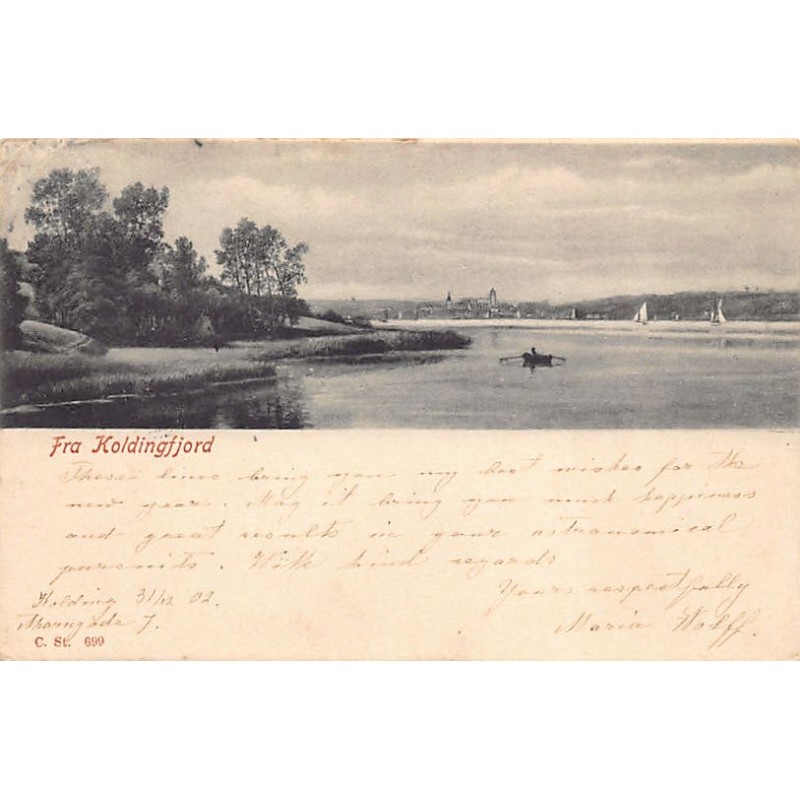 Fra Koldingfjord
These lines bring you my best wishes for the
new year. May it bring you much happiness
and great results in your astronomical
pursuits. With kind regards
Yours respectfully
Kolding 31/12 02.
Maria Wolff.
7.
C. St. 699